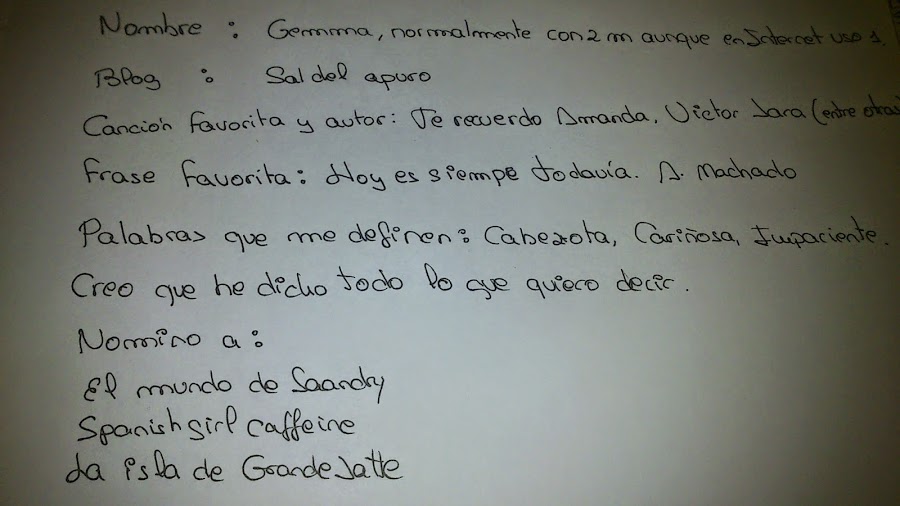 Nombre : Gemma, normalmente con 2 m aunque en Internet uso 1.
Blog : Sal del apuro
Canción favorita y autor: Te recuerdo Amanda, Victor Jara (entre otras)
Frase favorita: Hoy es siempe todavía. A. Machado
Palabras que me definen: Cabezota, Cariñosa, Impaciente.
Creo que he dicho todo lo que quiero decir.
Nomino a:
El mundo de Saandry
Spanishgirl caffeine
La isla de GrandeJatte